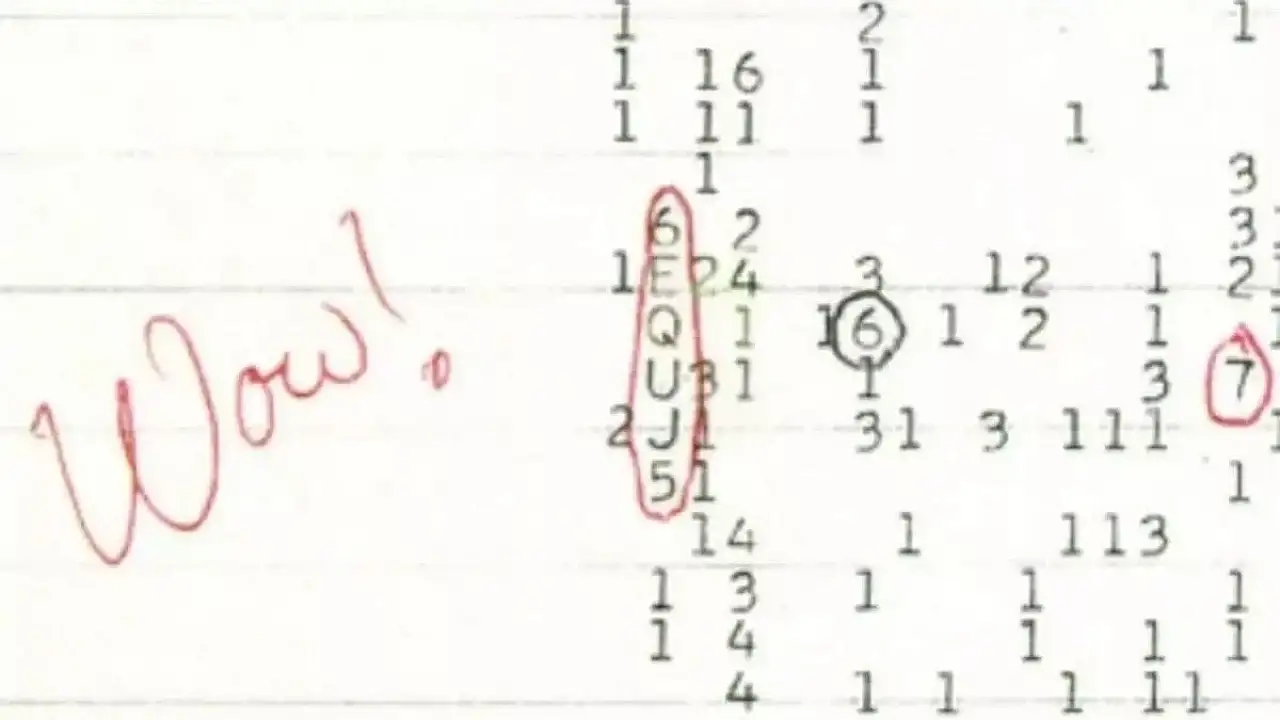 1 2 1
1 16 1 1
1 11 1 1
1 3
6 2 3
1E24 3 12 1 2
Q 1 16 1 2 1 1
U31 1 3 7
Wow!
2J1 31 3 111 1
51 1
14 1 113
1 3 1 1 1
1 4 1 1 1
4 1 1 1 11